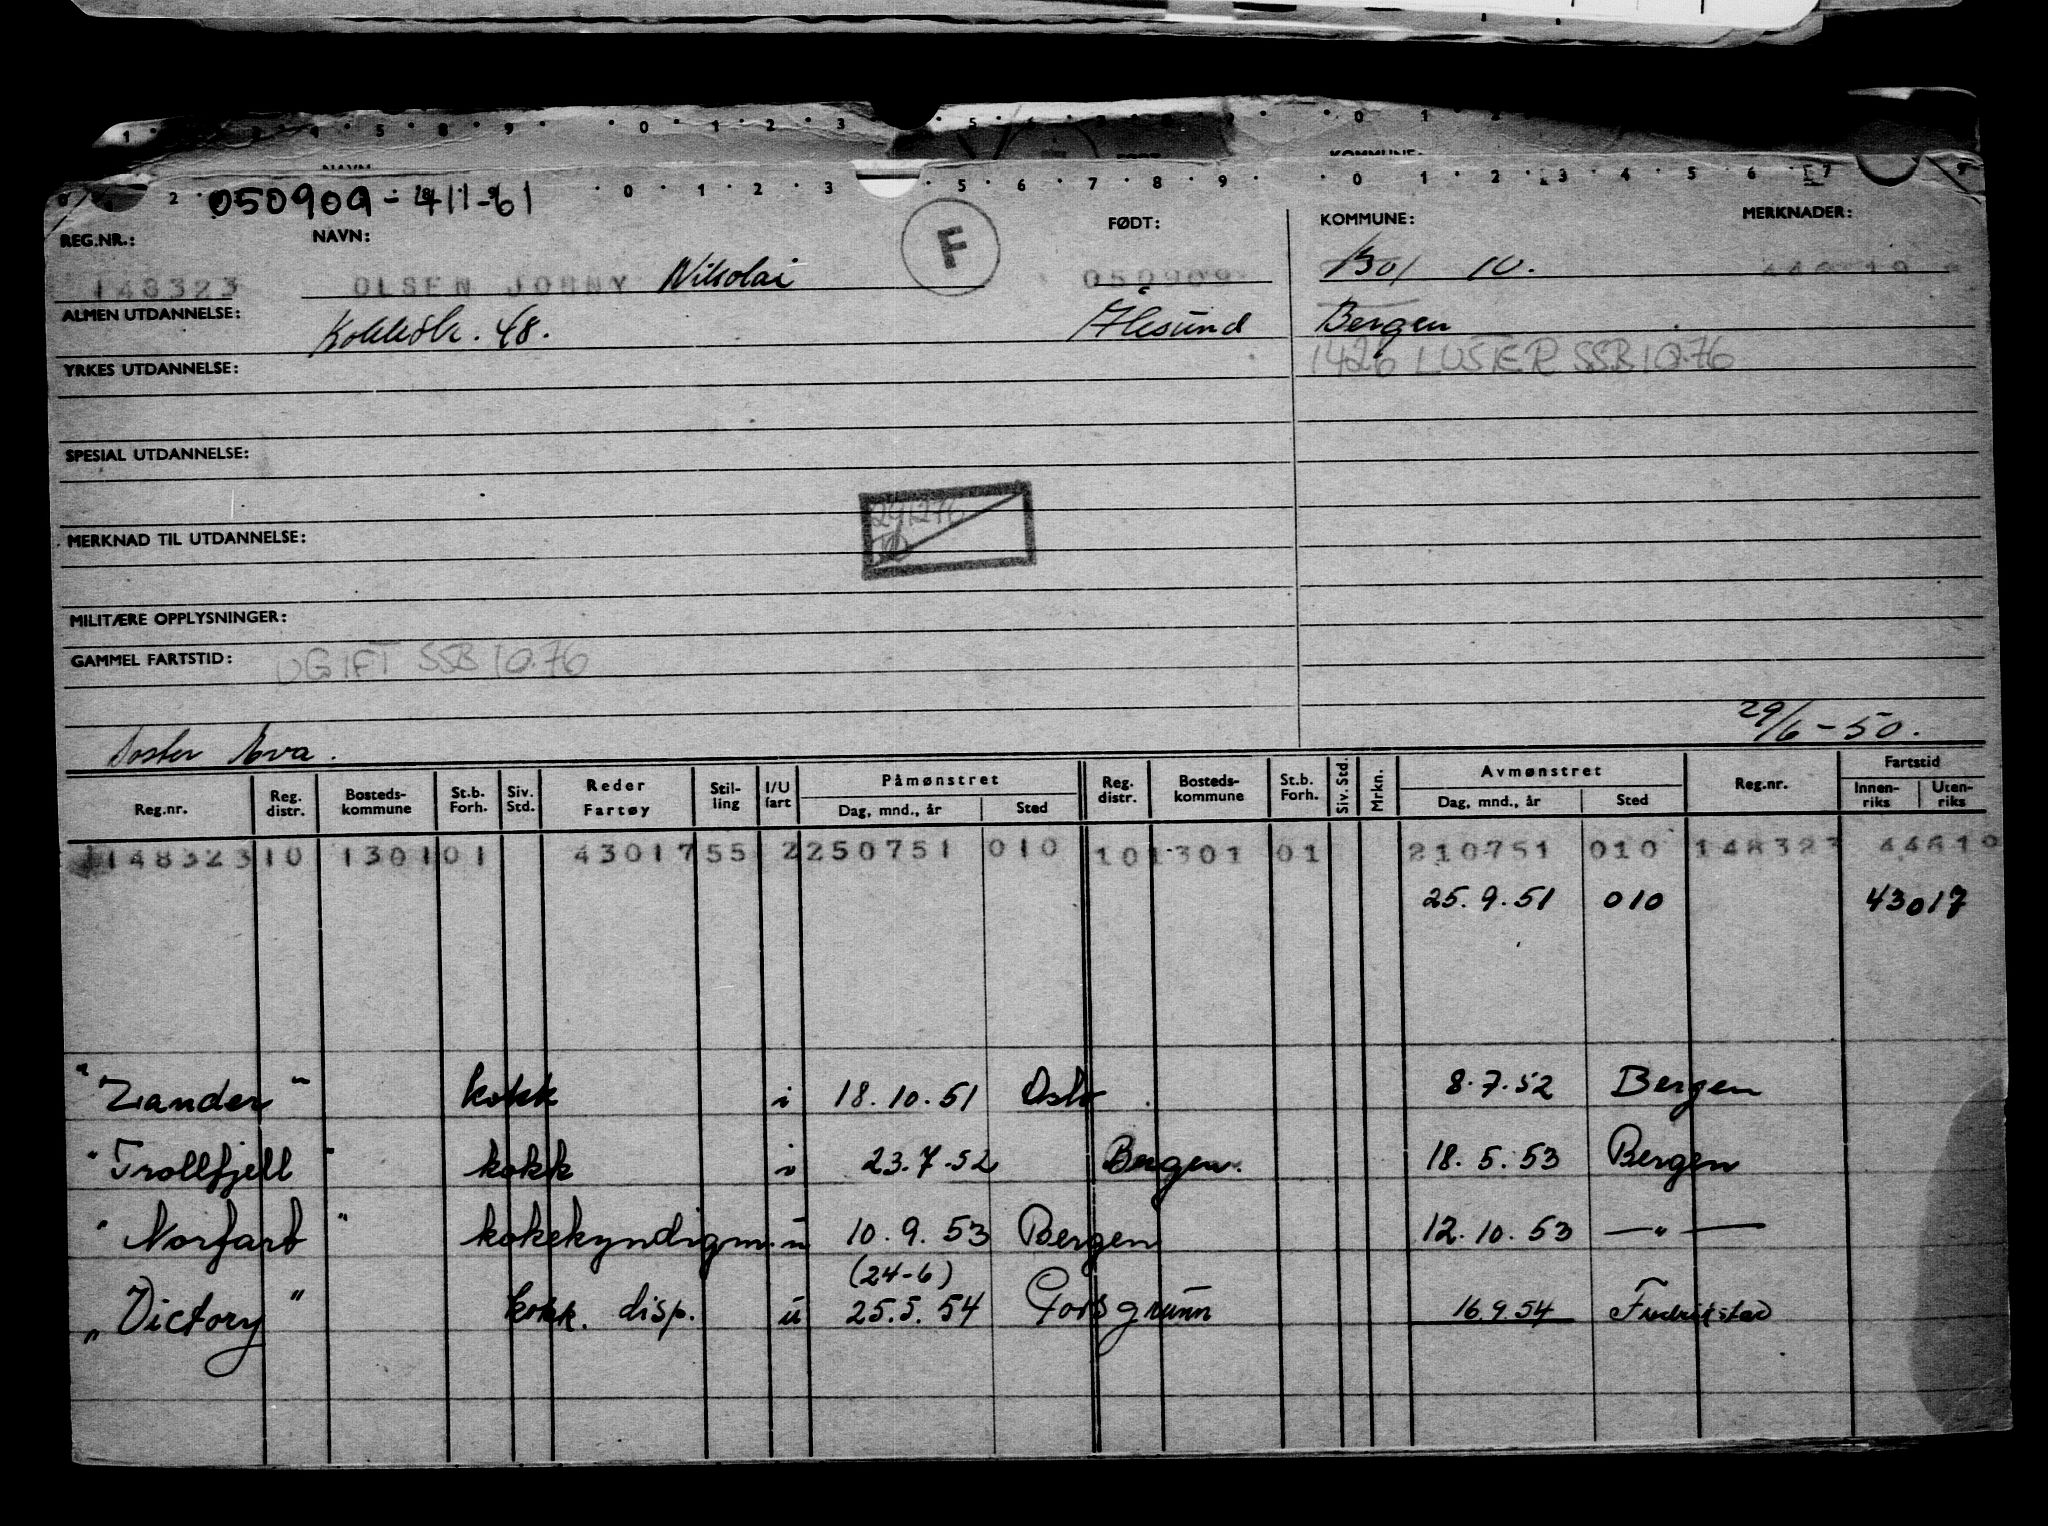 050909-411-61
REG.NR.: NAVN: F FØDT: KOMMUNE: MERKNADER:
148323 OLSEN JOHNY Nikolai 050909 1301 10.
ALMEN UTDANNELSE: Kokksk. 48. Ålesund Bergen
YRKES UTDANNELSE: 1426 LUSTER SSB 10.76
SPESIAL UTDANNELSE:
MERKNAD TIL UTDANNELSE:
MILITÆRE OPPLYSNINGER:
GAMMEL FARTSTID: UGIFT SSB 10.76
29/6-50.
Søster Eva.
Reg.nr. Reg. distr. Bosteds-kommune St.b. Forh. Siv. Std. Reder Fartøy Stil-ling I/U fart Påmønstret Dag, mnd., år Sted Reg. distr. Bosteds-kommune St.b. Forh. Siv. Std. Mrkn. Avmønstret Dag, mnd., år Sted Reg.nr. Fartstid Innen-riks Uten-riks
148323 10 1301 01 43017 55 2 250751 010 10 1301 01 210751 010 148323 44610
25.9.51 010 43017
"Zander" kokk i 18.10.51 Oslo 8.7.52 Bergen
"Trollfjell" kokk i 23.7.52 Bergen. 18.5.53 Bergen
"Norfart" kokekyndigm. u 10.9.53 Bergen 12.10.53 —"—
(24-6)
"Victory" kokk. disp. u 25.5.54 Porsgrunn 16.9.54 Fredrikstad